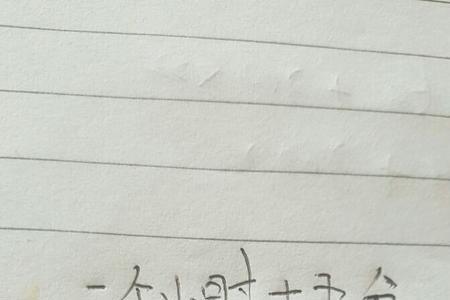 一个小时十五分